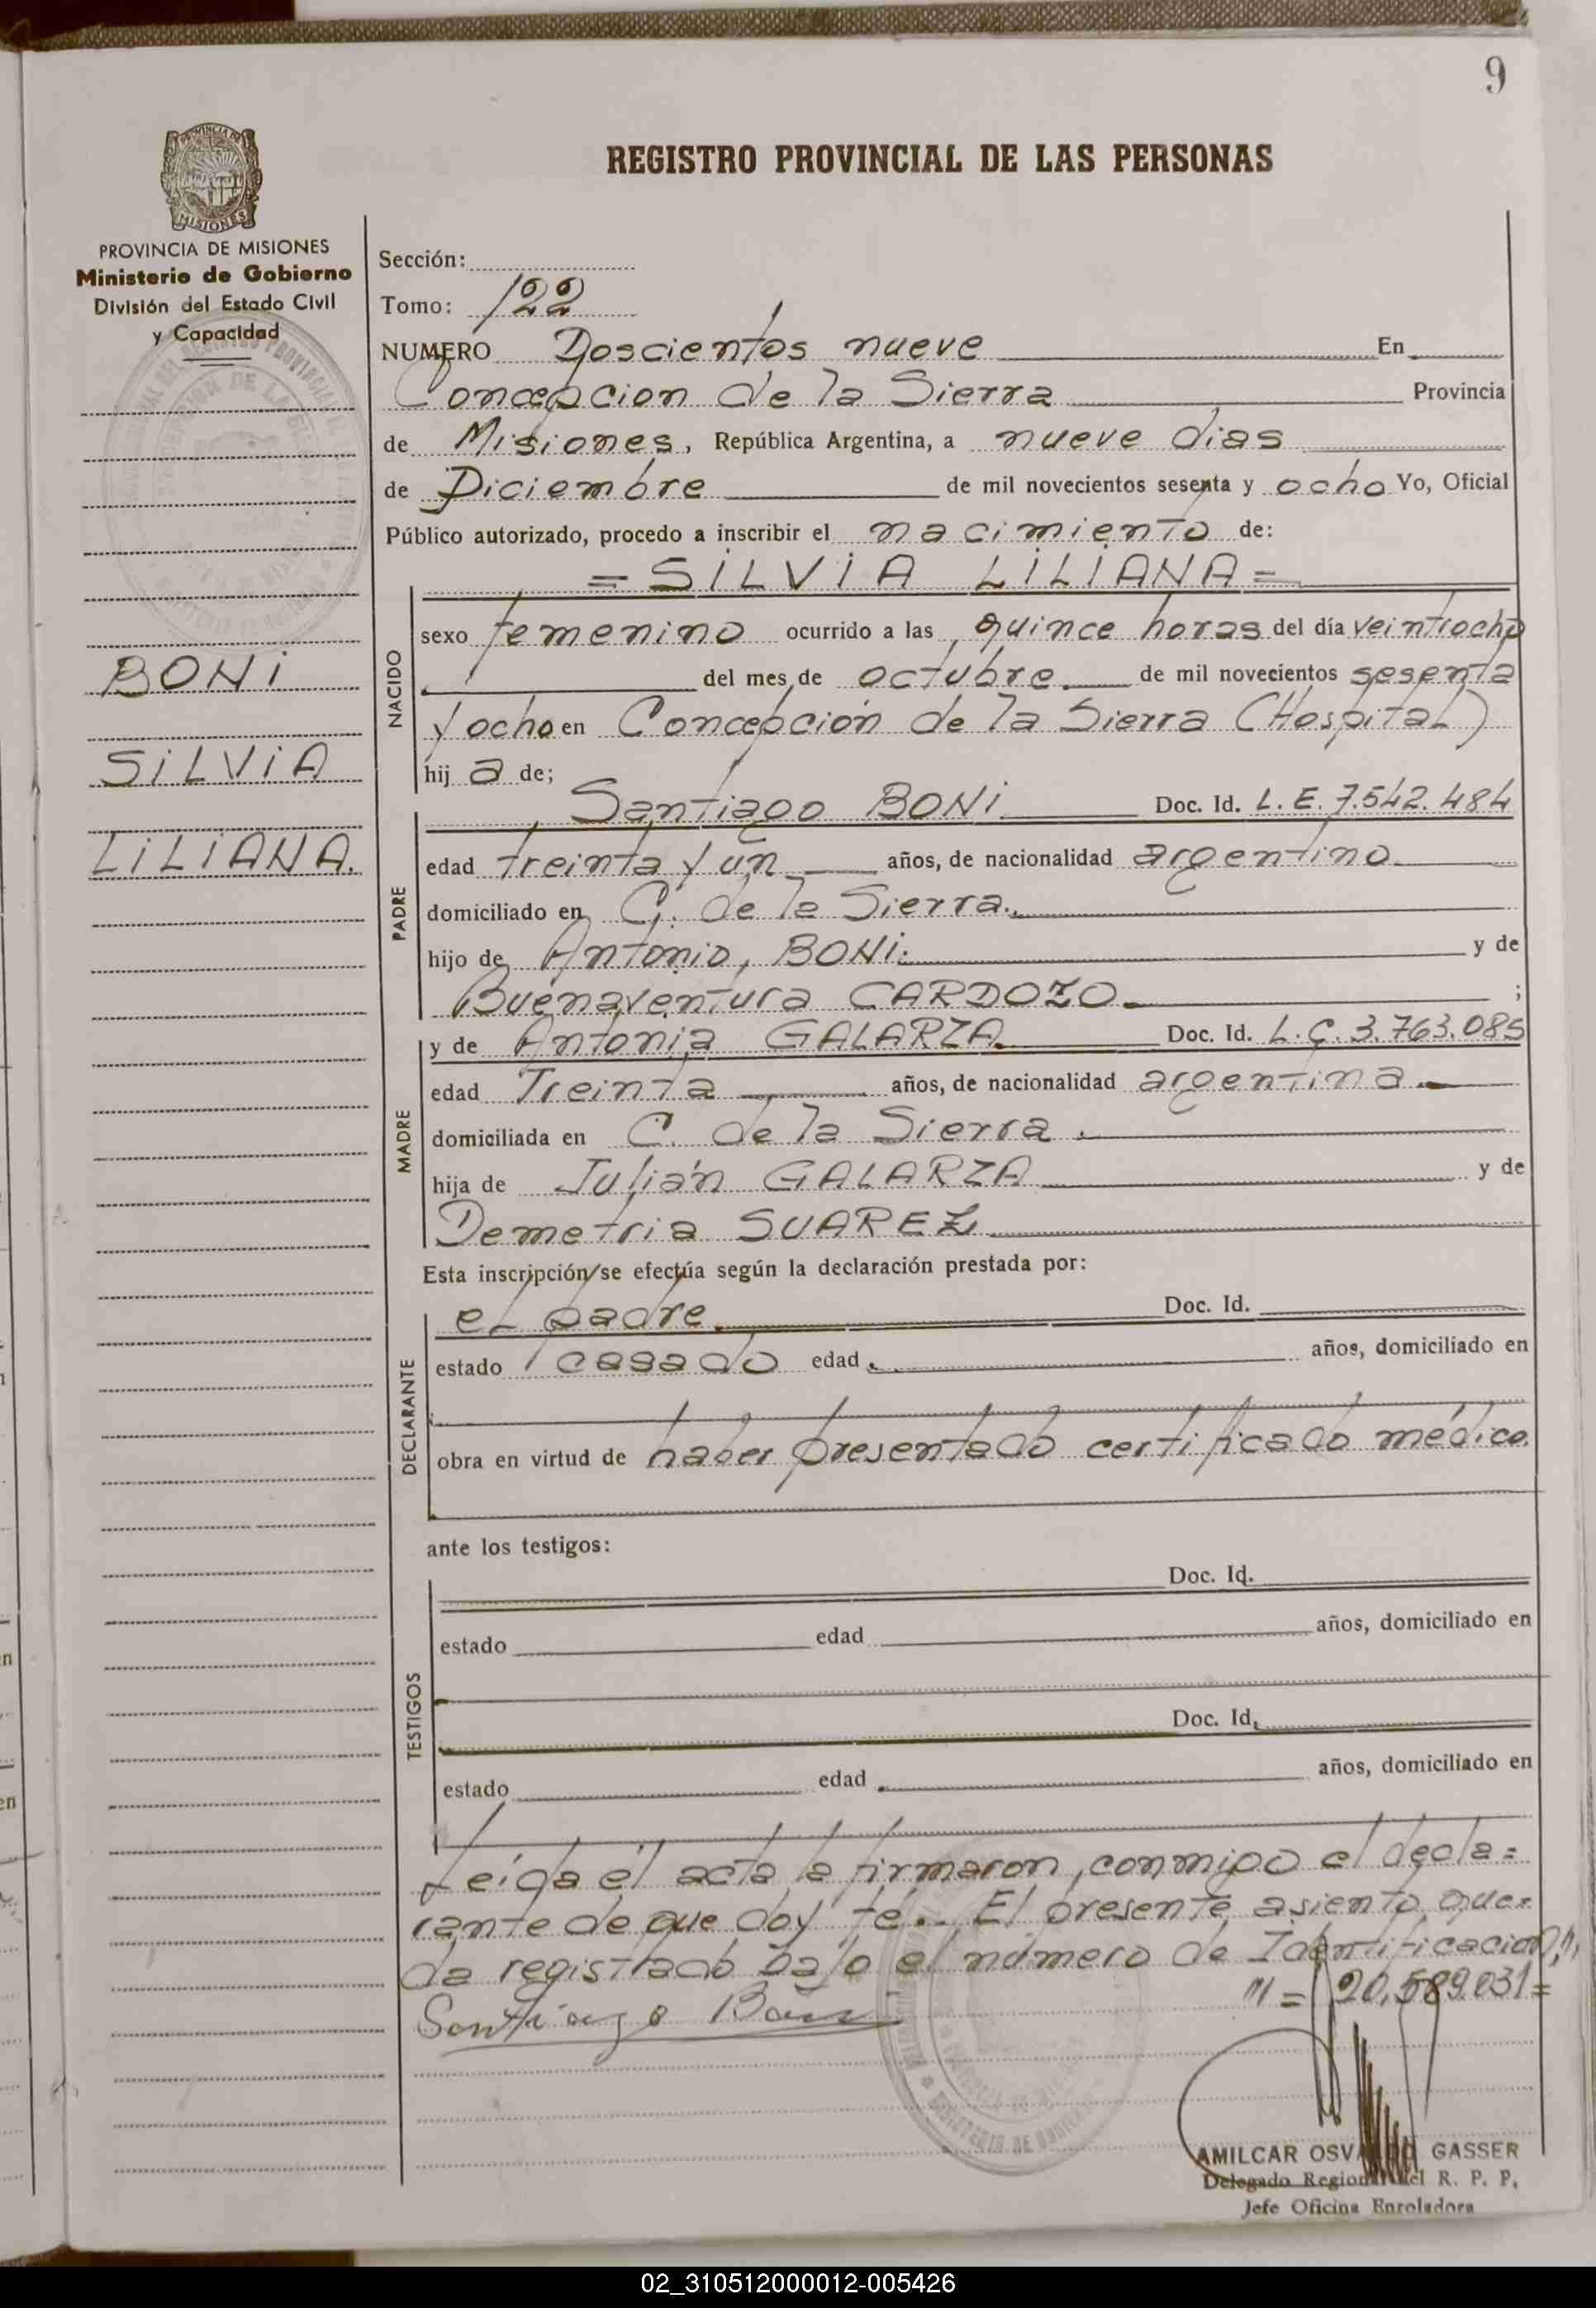 9
REGISTRO PROVINCIAL DE LAS PERSONAS
PROVINCIA DE MISIONES
Ministerio de Gobierno
División del Estado Civil
y Capacidad
BONI
SILVIA
LILIANA.
Sección:
Tomo: 122
NUMERO Doscientos nueve En
Concepcion de la Sierra Provincia
de Misiones, República Argentina, a nueve dias
de Diciembre de mil novecientos sesenta y ocho Yo, Oficial
Público autorizado, procedo a inscribir el nacimiento de:
= SILVIA LILIANA =
NACIDO
sexo femenino ocurrido a las quince horas del día veintiocho
del mes de octubre de mil novecientos sesenta
y ocho en Concepción de la Sierra (Hospital)
hij a de;
PADRE
Santiago BONI Doc. Id. L. E. 7.542.484
edad treinta y un años, de nacionalidad argentino
domiciliado en C. de la Sierra.
hijo de Antonio, BONI. y de
Buenaventura CARDOZO ;
MADRE
y de Antonia GALARZA Doc. Id. L. C. 3.763.085
edad Treinta años, de nacionalidad argentina
domiciliada en C. de la Sierra.
hija de Julián GALARZA y de
Demetria SUAREZ
Esta inscripción se efectúa según la declaración prestada por:
DECLARANTE
el padre. Doc. Id.
estado casado edad años, domiciliado en
obra en virtud de haber presentado certificado médico.
ante los testigos:
TESTIGOS
Doc. Id.
estado edad años, domiciliado en
Doc. Id.
estado edad años, domiciliado en
Leída el acta la firmaron, conmigo el decla=
rante de que doy fé.. El presente asiento que=
da registrado bajo el número de Identificacion,"
" = 20.589.031=
Santiago Boni
AMILCAR OSVALDO GASSER
Delegado Regional del R. P. P.
Jefe Oficina Enroladora
02_310512000012-005426